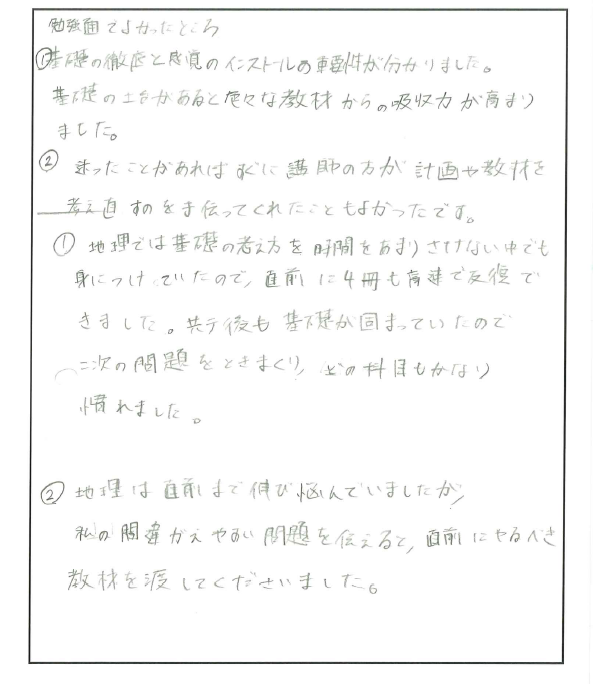 勉強面でよかったところ
①基礎の徹底と感覚のインストールの重要性が分かりました。
基礎の土台があると色々な教材からの吸収力が高まり
ました。
② 迷ったことがあればすぐに講師の方が計画や教材を
考え直すのを手伝ってくれたこともよかったです。
① 地理では基礎の考え方を時間をあまりさけない中でも
身につけていたので、直前に4冊も高速で反復で
きました。共テ後も基礎が固まっていたので
二次の問題をときまくり、どの科目もかなり
慣れました。
② 地理は直前まで伸び悩んでいましたが、
私の間違がえやすい問題を伝えると、直前にやるべき
教材を渡してくださいました。